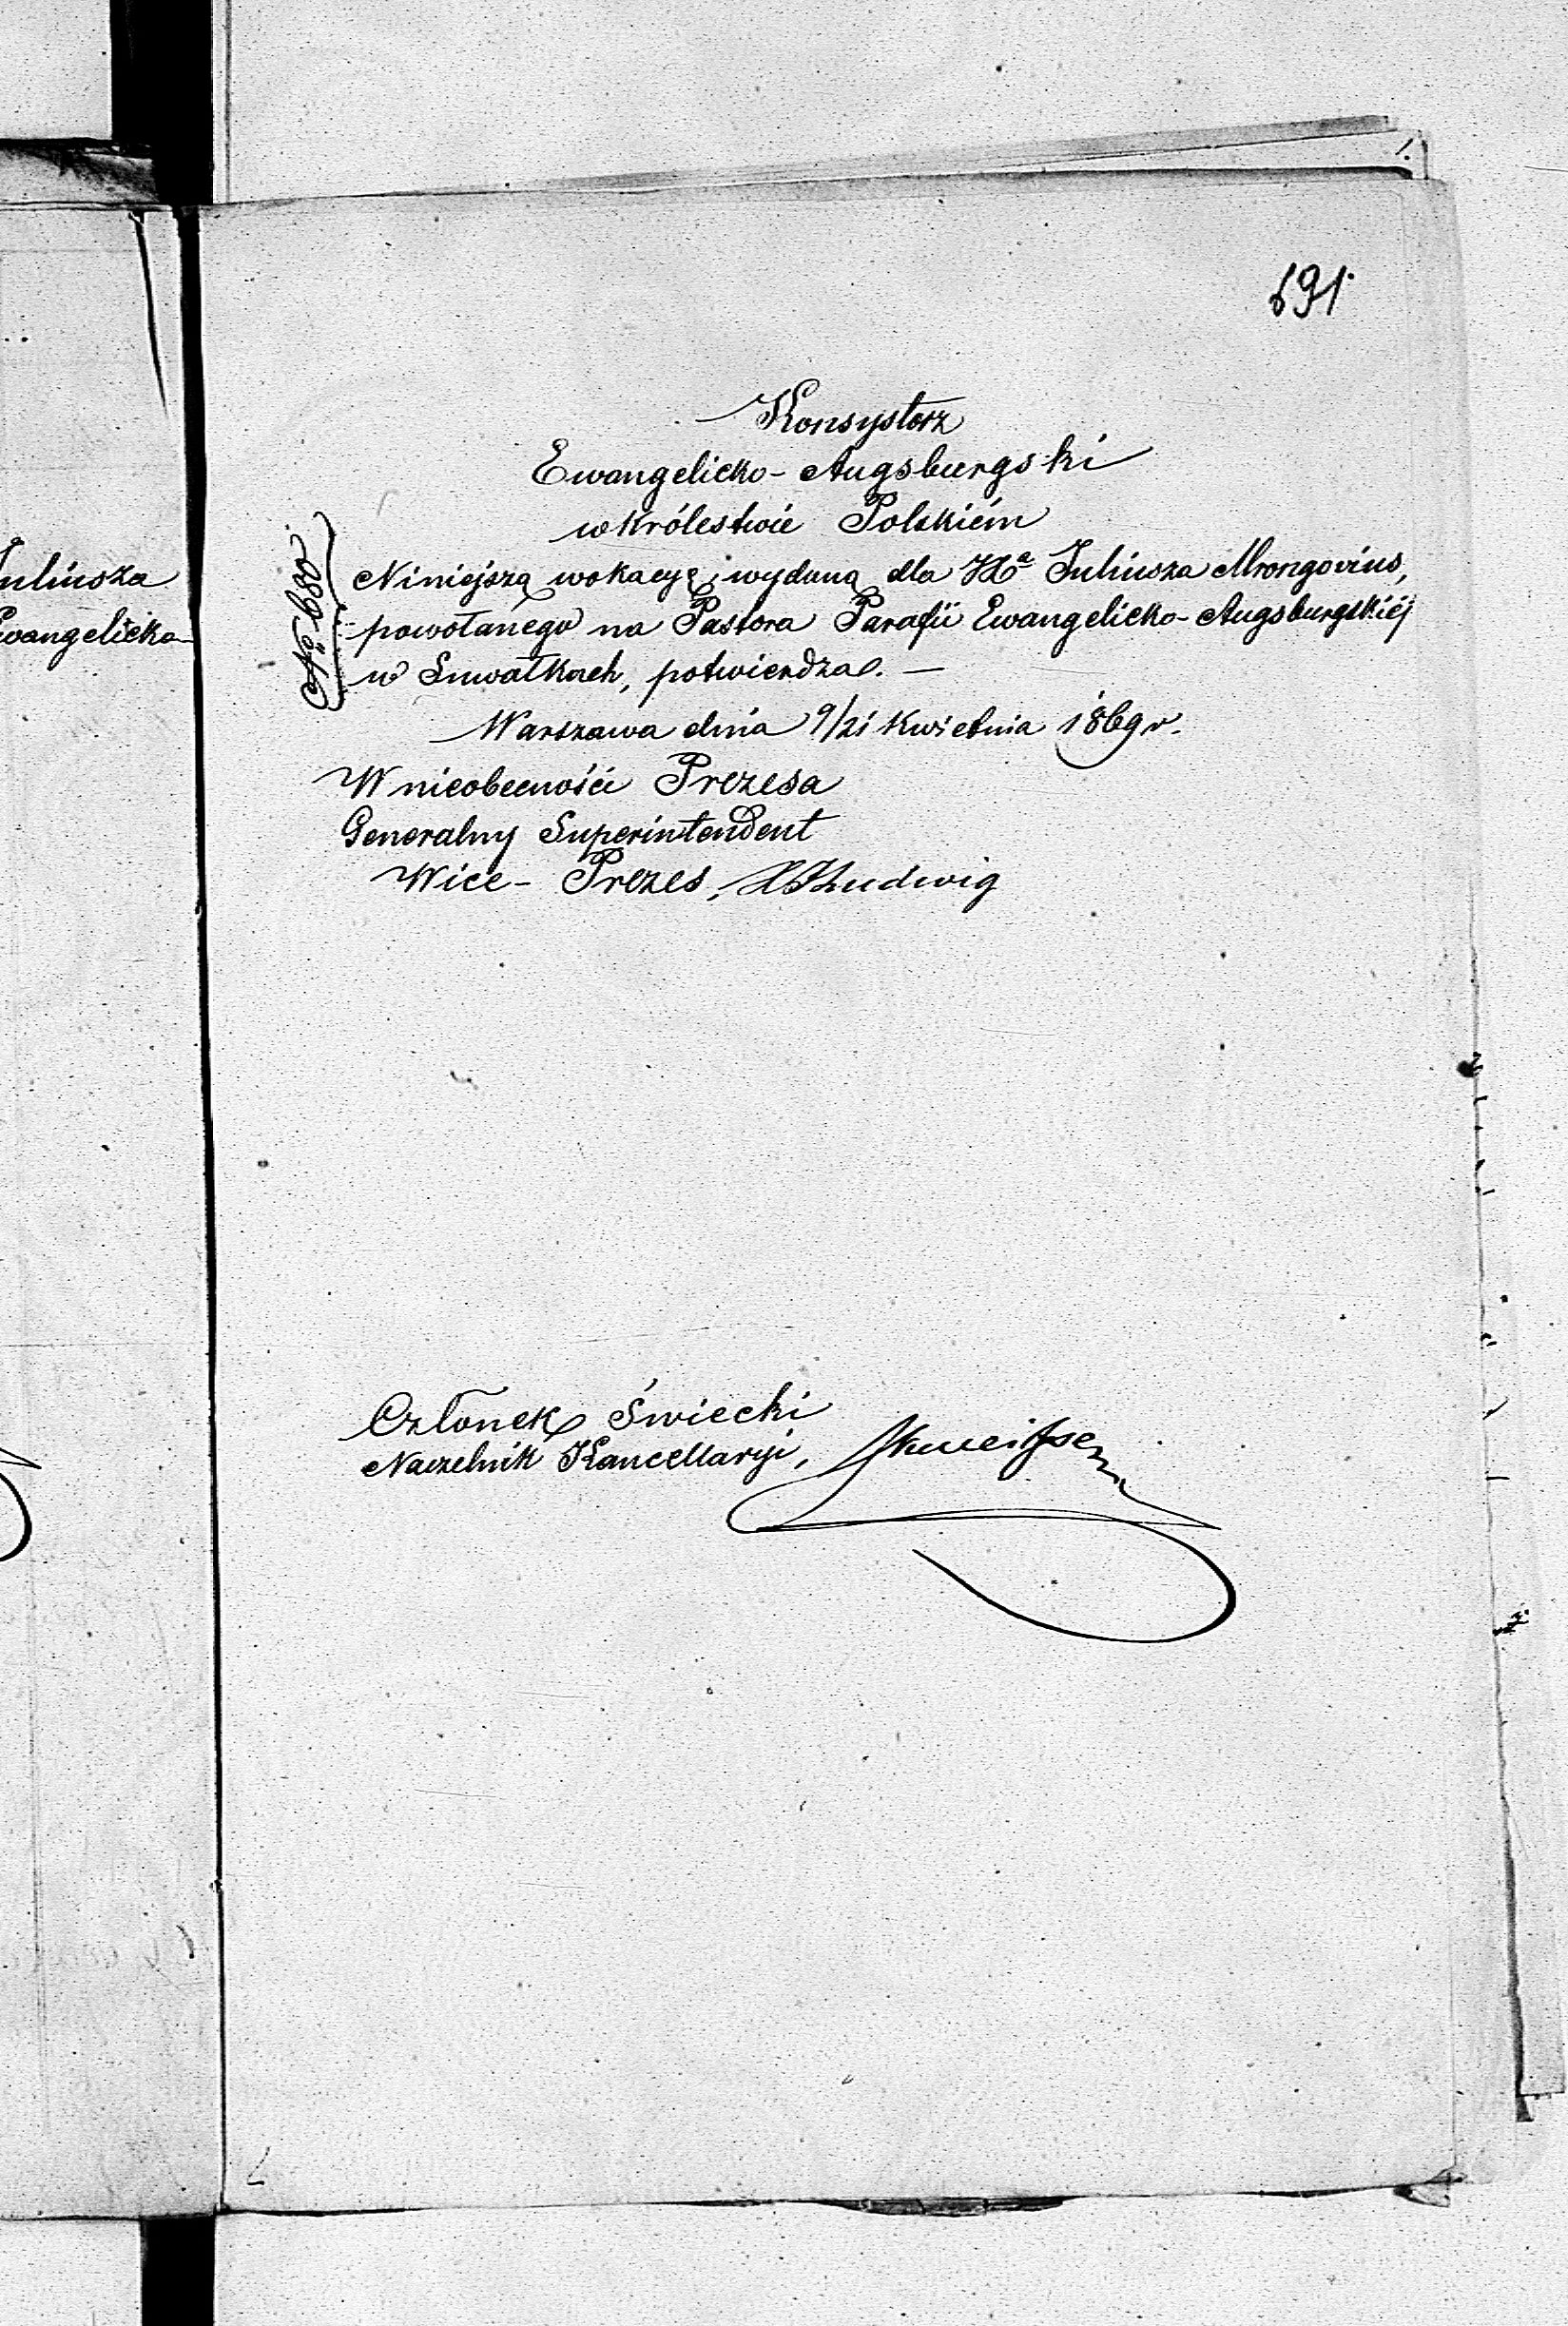 691.
Konsystorz
Ewangelicko-Augsburgski
w Królestwie Polskiém
№ 680.
Niniejszą wokacyę, wydaną dla Xa Juliusza Mrongovius,
powołanego na Pastora Parafii Ewangelicko-Augsburgskiéj
w Suwałkach, potwierdza. —
Warszawa dnia 9/21 Kwietnia 1869 r.
W nieobecności Prezesa
Generalny Superintendent
Wice-Prezes, Ludwig
Członek Świecki
Naczelnik Kancellaryi,
Juliusza
Ewangelicko-